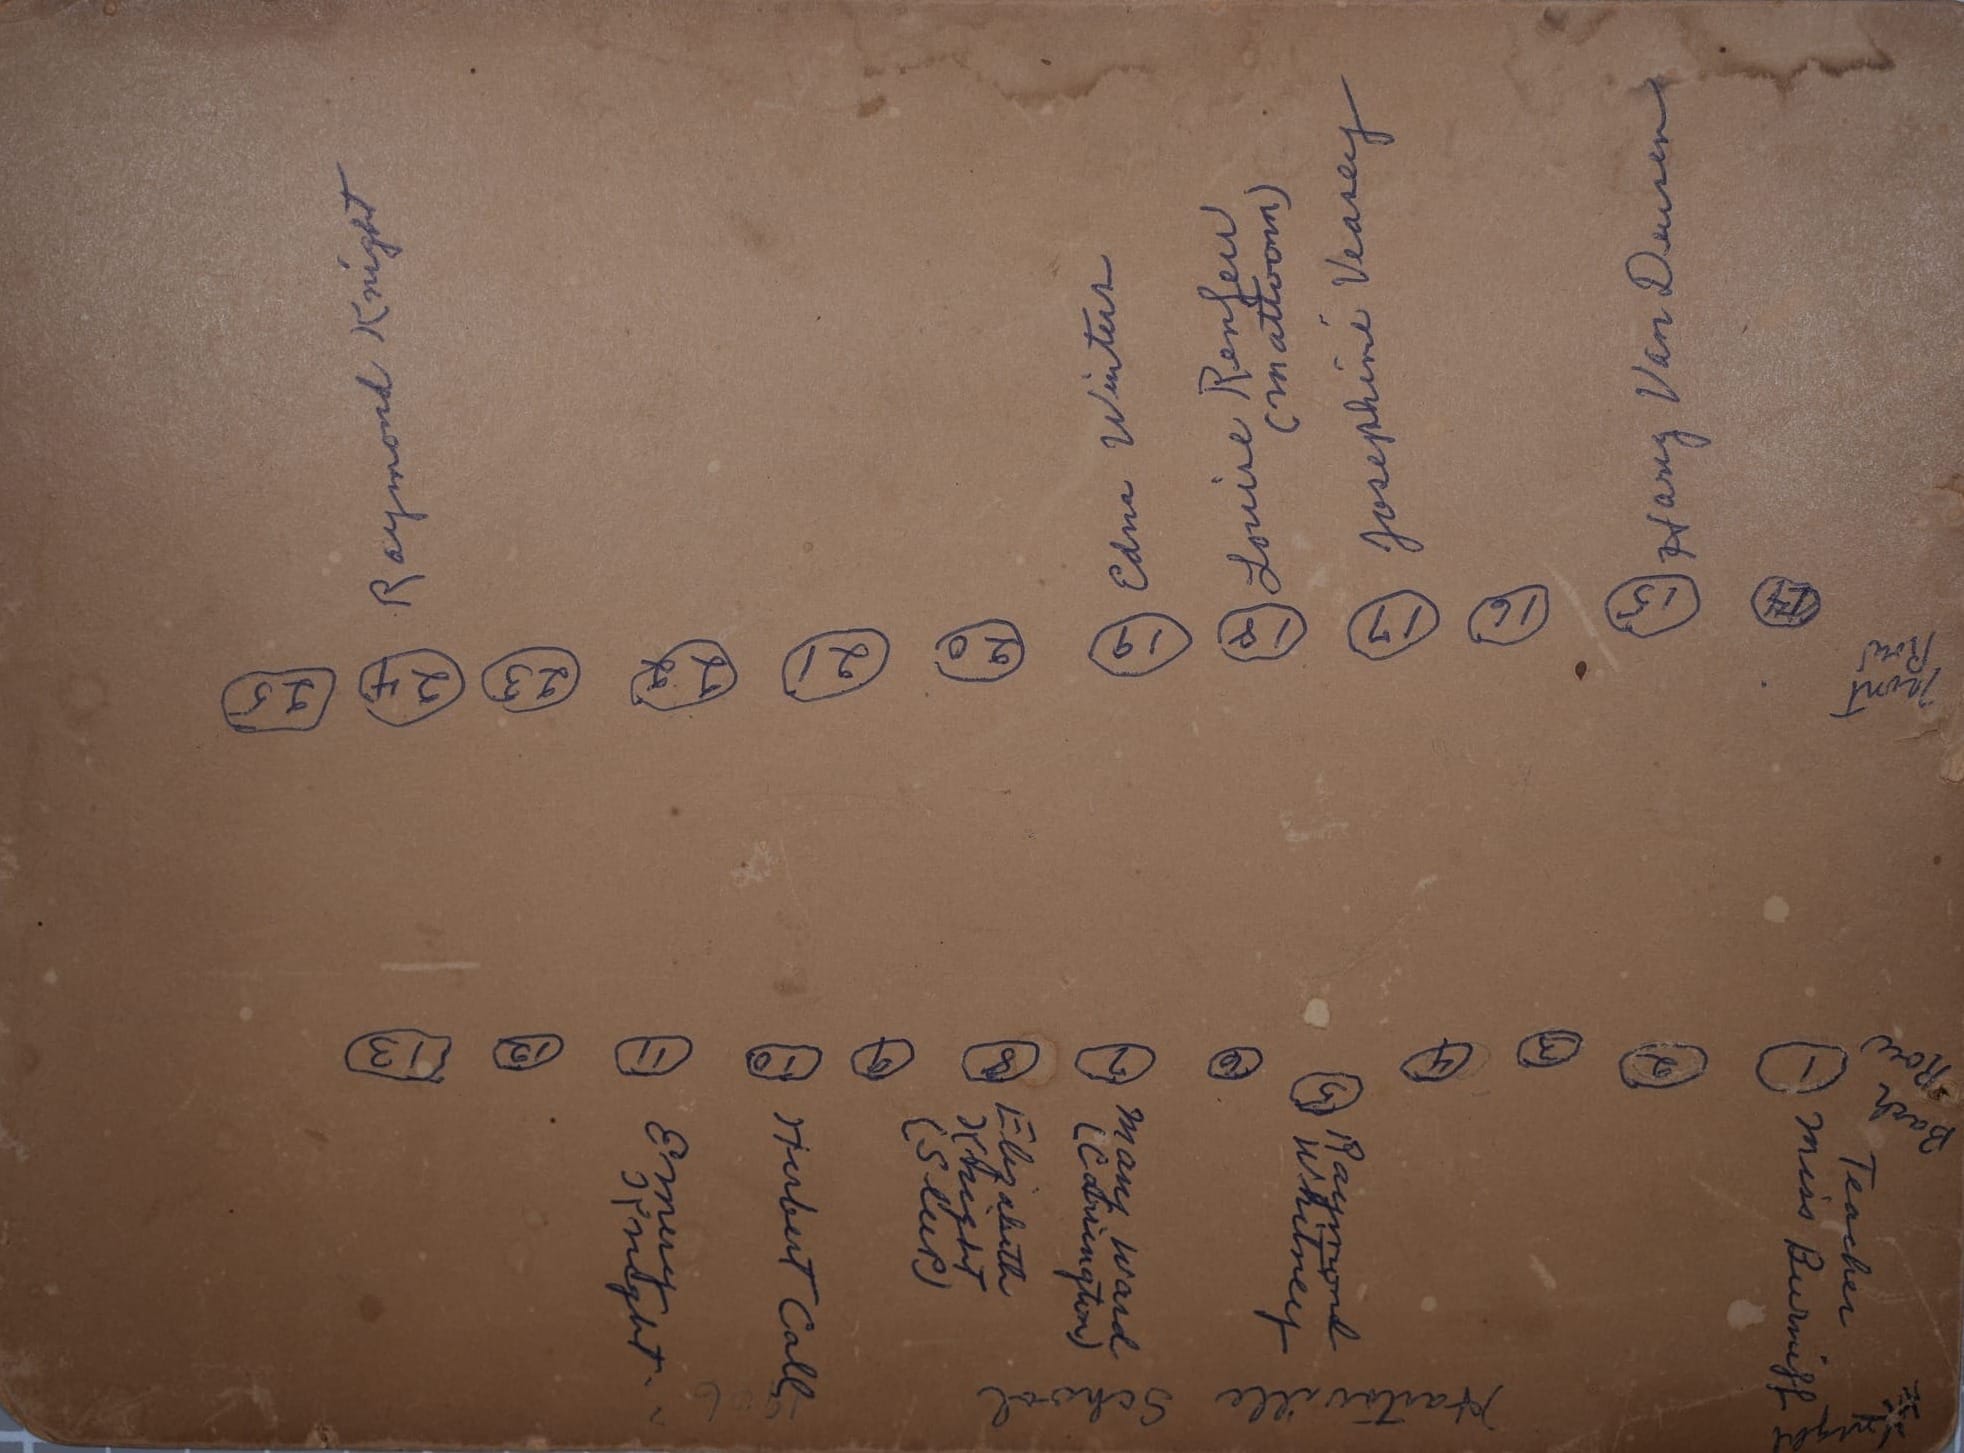 Hartsville
School
Back
Row
1 Teacher
Miss Burniff
2
3
4
5 Raymond
Whitney
6
7 Mary Ward
(Edrington)
8 Elizabeth
Knight
(Sleep)
9
10 Hurbert Call
11 Emery
Knight
12
13
Front
Row
14
15 Harry Van Deusen
16
17 Josephine Veasey
18 Louise Renfer
(Mattoon)
19 Edna Winters
20
21
22
23
24 Raymond Knight
25